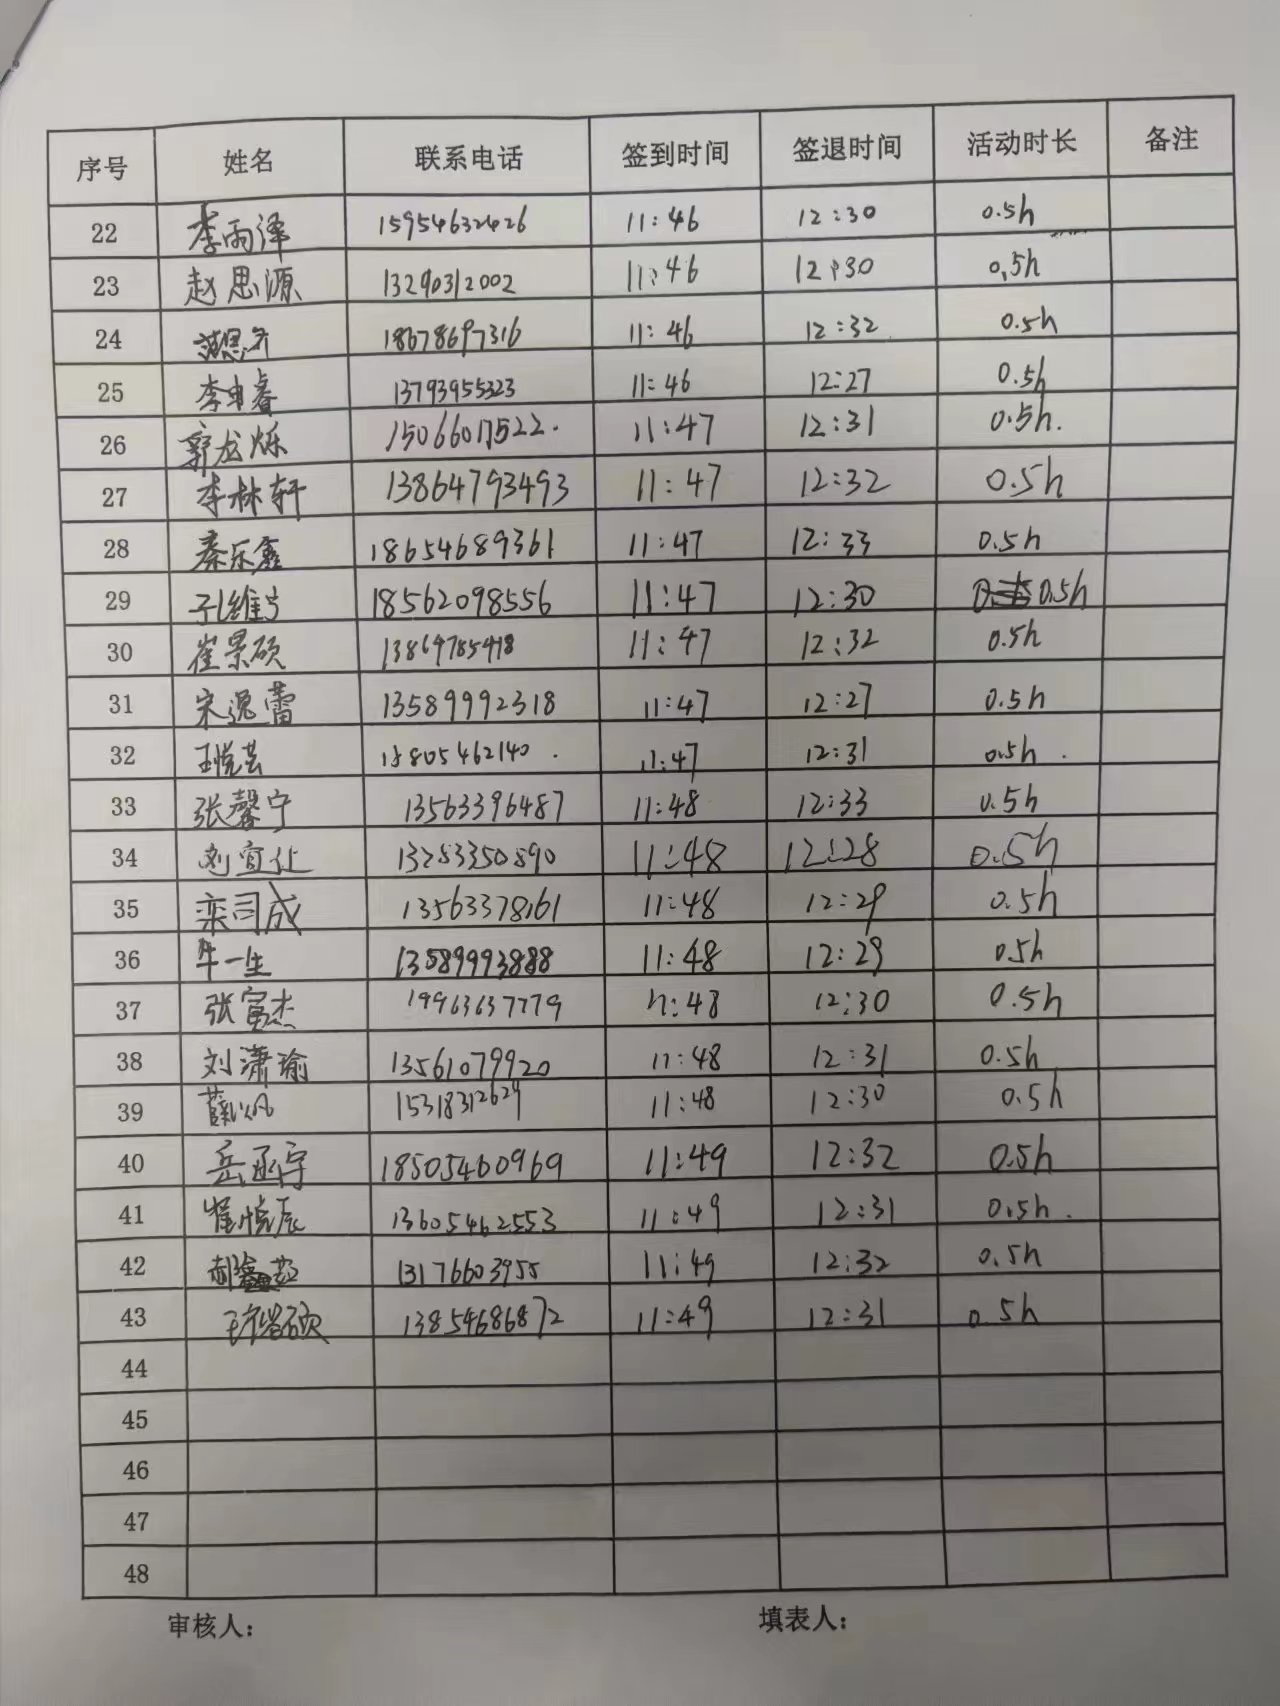 序号 姓名 联系电话 签到时间 签退时间 活动时长 备注
22 李雨泽 15954632426 11:46 12:30 0.5h
23 赵思源 13290312002 11:46 12:30 0.5h
24 18678697316 11:46 12:32 0.5h
25 李申睿 13793955323 11:46 12:27 0.5h
26 郭龙烁 15066017522. 11:47 12:31 0.5h.
27 李林轩 13864793493 11:47 12:32 0.5h
28 秦乐鑫 18654689361 11:47 12:33 0.5h
29 孔维宁 18562098556 11:47 12:30 0.5h
30 崔景硕 13864785418 11:47 12:32 0.5h
31 宋逸蕾 13589992318 11:47 12:27 0.5h
32 王悦芸 11:47 12:31 0.5h .
33 张馨宁 13563396487 11:48 12:33 0.5h
34 刘宜让 13283350890 11:48 12:28 0.5h
35 栾司成 13563378161 11:48 12:29 0.5h
36 牛一生 13589993888 11:48 12:29 0.5h
37 张寅杰 19963637779 11:48 12:30 0.5h
38 刘潇瑜 13561079920 11:48 12:31 0.5h
39 薛以凡 15318312629 11:48 12:30 0.5h
40 岳函宇 18505460969 11:49 12:32 0.5h
41 崔悦辰 13605462553 11:49 12:31 0.5h.
42 13176603955 11:49 12:32 0.5h
43 13854686872 11:49 12:31 0.5h
44
45
46
47
48
审核人: 填表人: